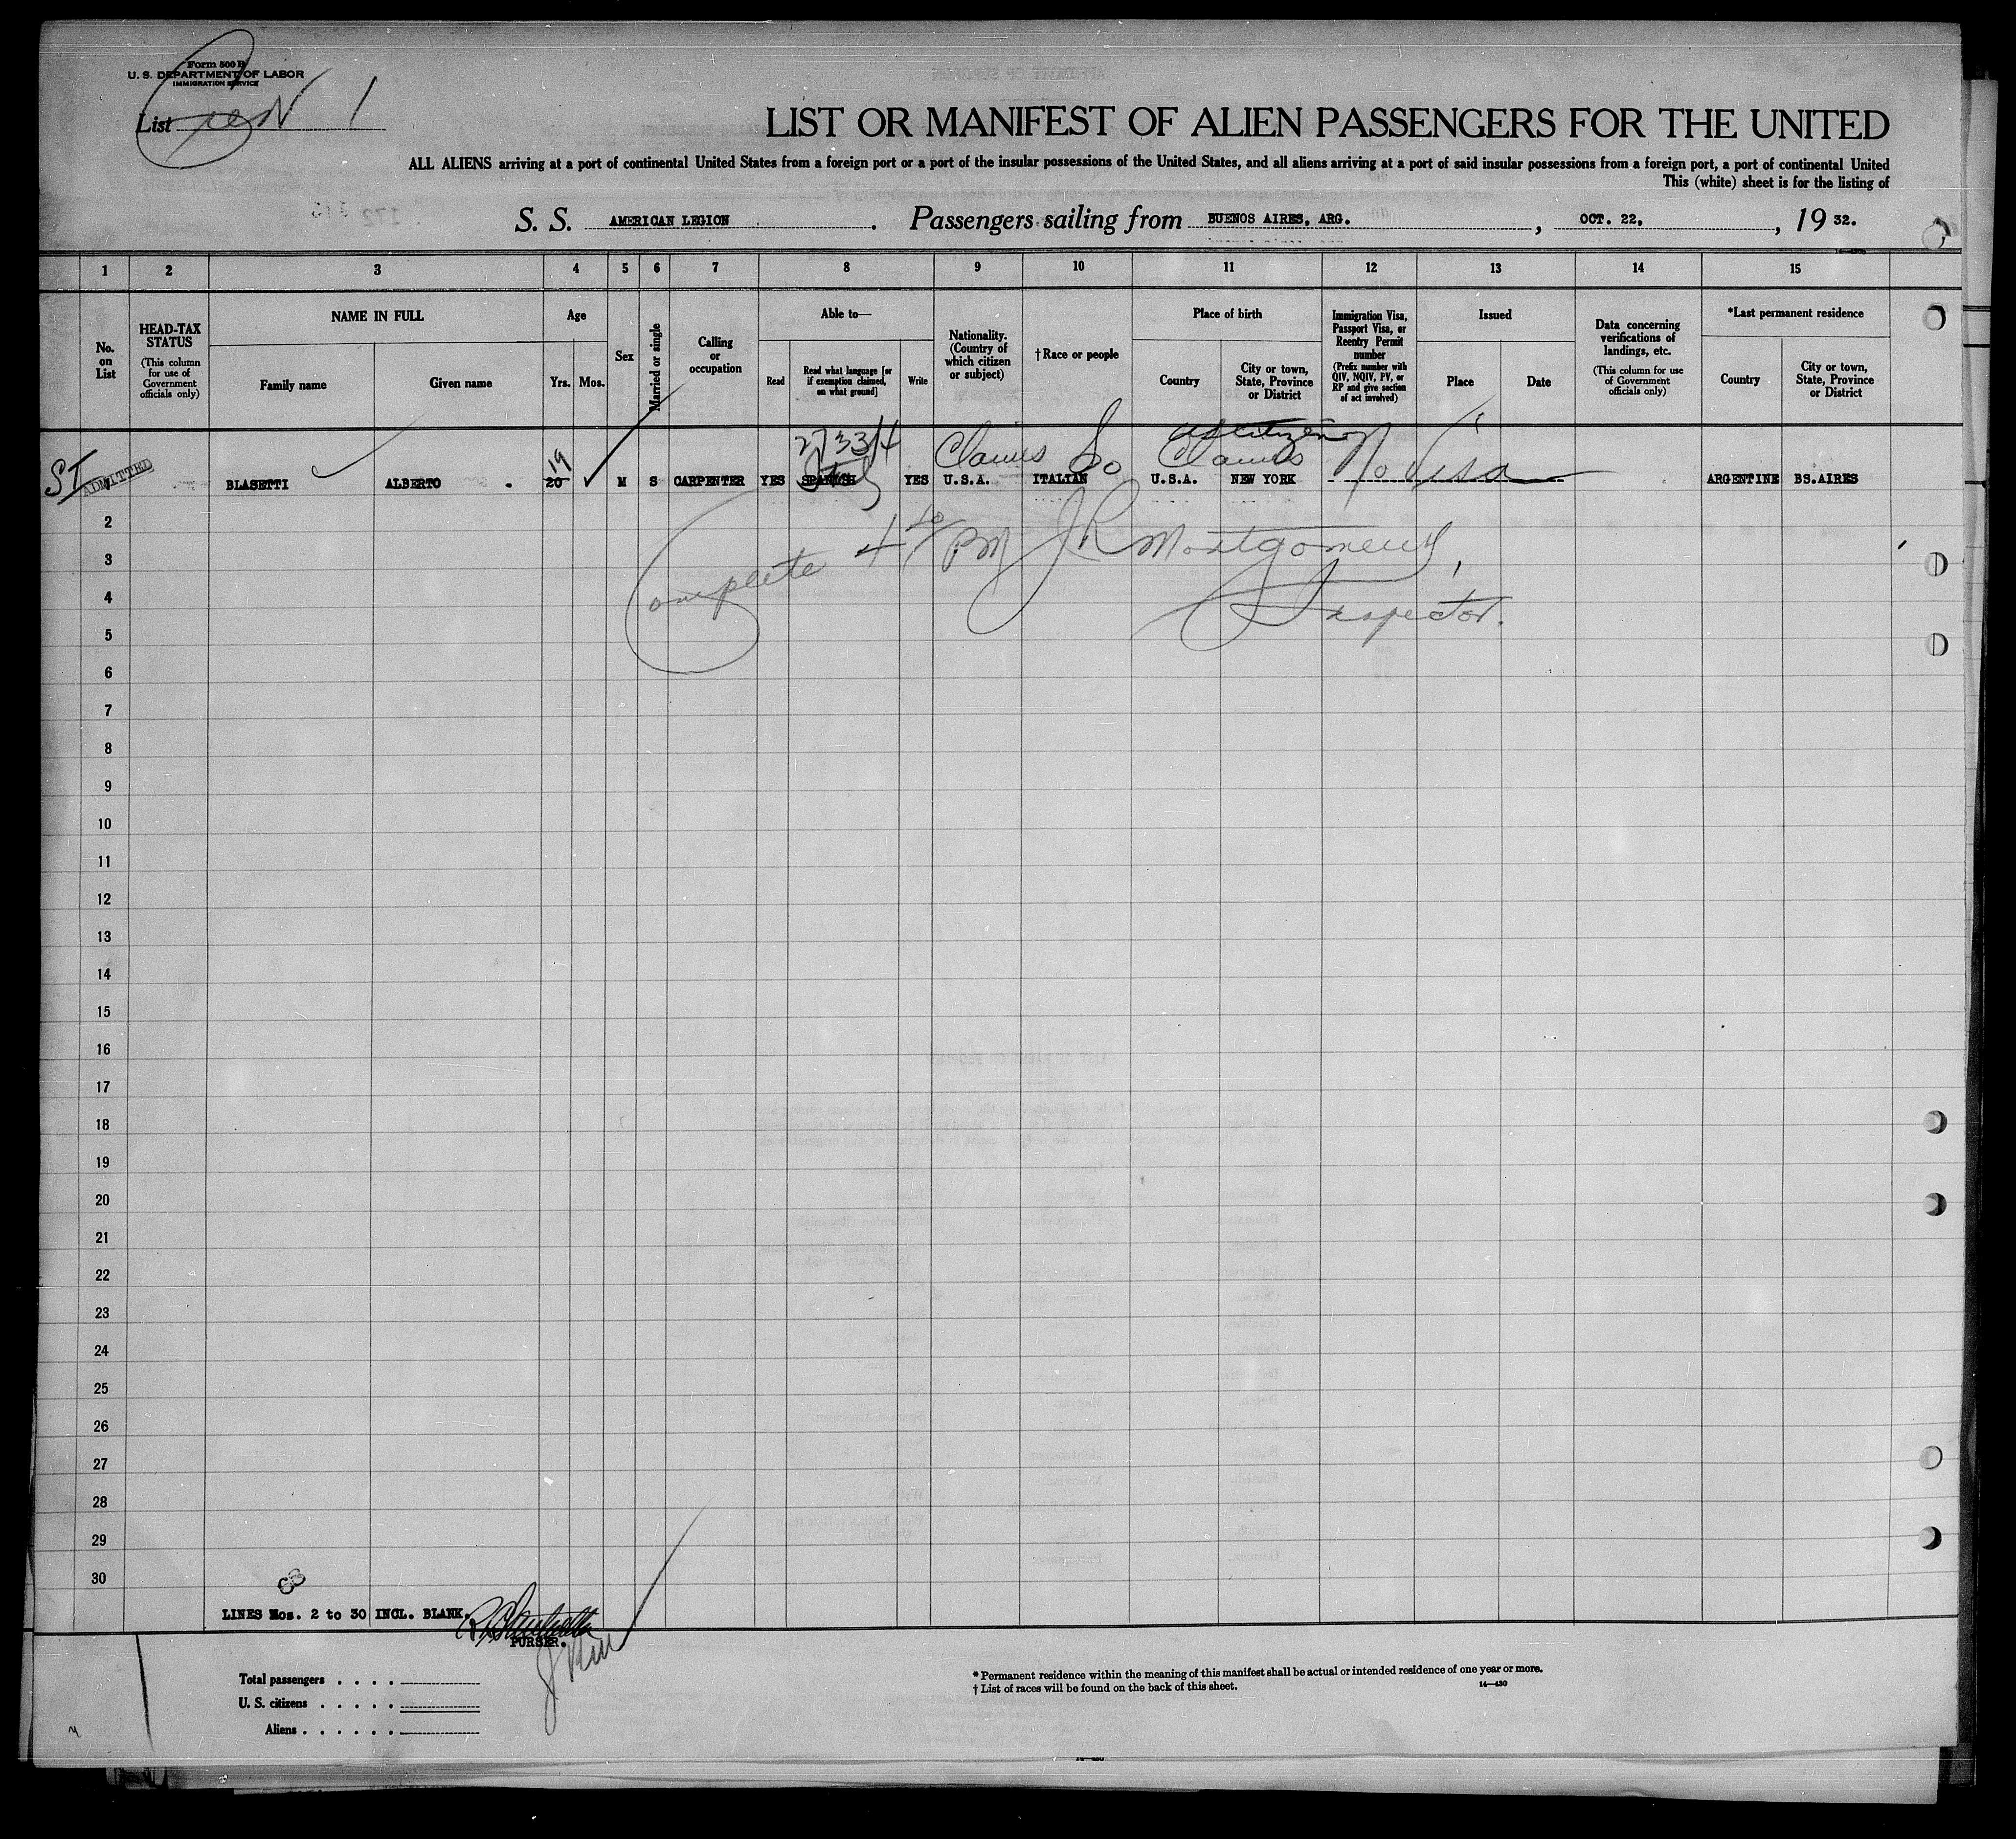 Form 500 B
U. S. DEPARTMENT OF LABOR
IMMIGRATION SERVICE
List 1
LIST OR MANIFEST OF ALIEN PASSENGERS FOR THE UNITED
ALL ALIENS arriving at a port of continental United States from a foreign port or a port of the insular possessions of the United States, and all aliens arriving at a port of said insular possessions from a foreign port, a port of continental United
This (white) sheet is for the listing of
S. S. AMERICAN LEGION . Passengers sailing from BUENOS AIRES, ARG. , OCT. 22. , 19 32.
1 2 3 4 5 6 7 8 9 10 11 12 13 14 15
No. on List
HEAD-TAX STATUS
(This column for use of Government officials only)
NAME IN FULL
Family name
Given name
Age
Yrs. Mos.
Sex
Married or single
Calling or occupation
Able to—
Read
Read what language [or if exemption claimed, on what ground]
Write
Nationality. (Country of which citizen or subject)
†Race or people
Place of birth
Country
City or town, State, Province or District
Immigration Visa, Passport Visa, or Reentry Permit number
(Prefix number with QIV, NQIV, PV, or RP and give section of act involved)
Issued
Place
Date
Data concerning verifications of landings, etc.
(This column for use of Government officials only)
*Last permanent residence
Country
City or town, State, Province or District
27334 Claims So as citizen Claims No Visa
19
SI ADMITTED BLASETTI ALBERTO . 20 M S CARPENTER YES SPANISH YES U.S.A. ITALIAN U.S.A. NEW YORK ARGENTINE BS.AIRES
Complete 4 10 PM J R Montgomery,
Inspector.
2
3
4
5
6
7
8
9
10
11
12
13
14
15
16
17
18
19
20
21
22
23
24
25
26
27
28
29
30
LINES Nos. 2 to 30 INCL. BLANK.
PURSER.
Total passengers . . . .
U. S. citizens . . . . .
Aliens . . . . . .
* Permanent residence within the meaning of this manifest shall be actual or intended residence of one year or more.
† List of races will be found on the back of this sheet.
14—430